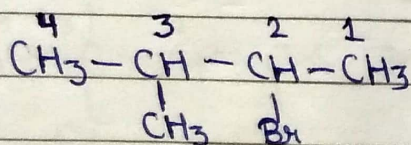 4 3 2 1
CH3 - CH - CH - CH3
CH3 Br